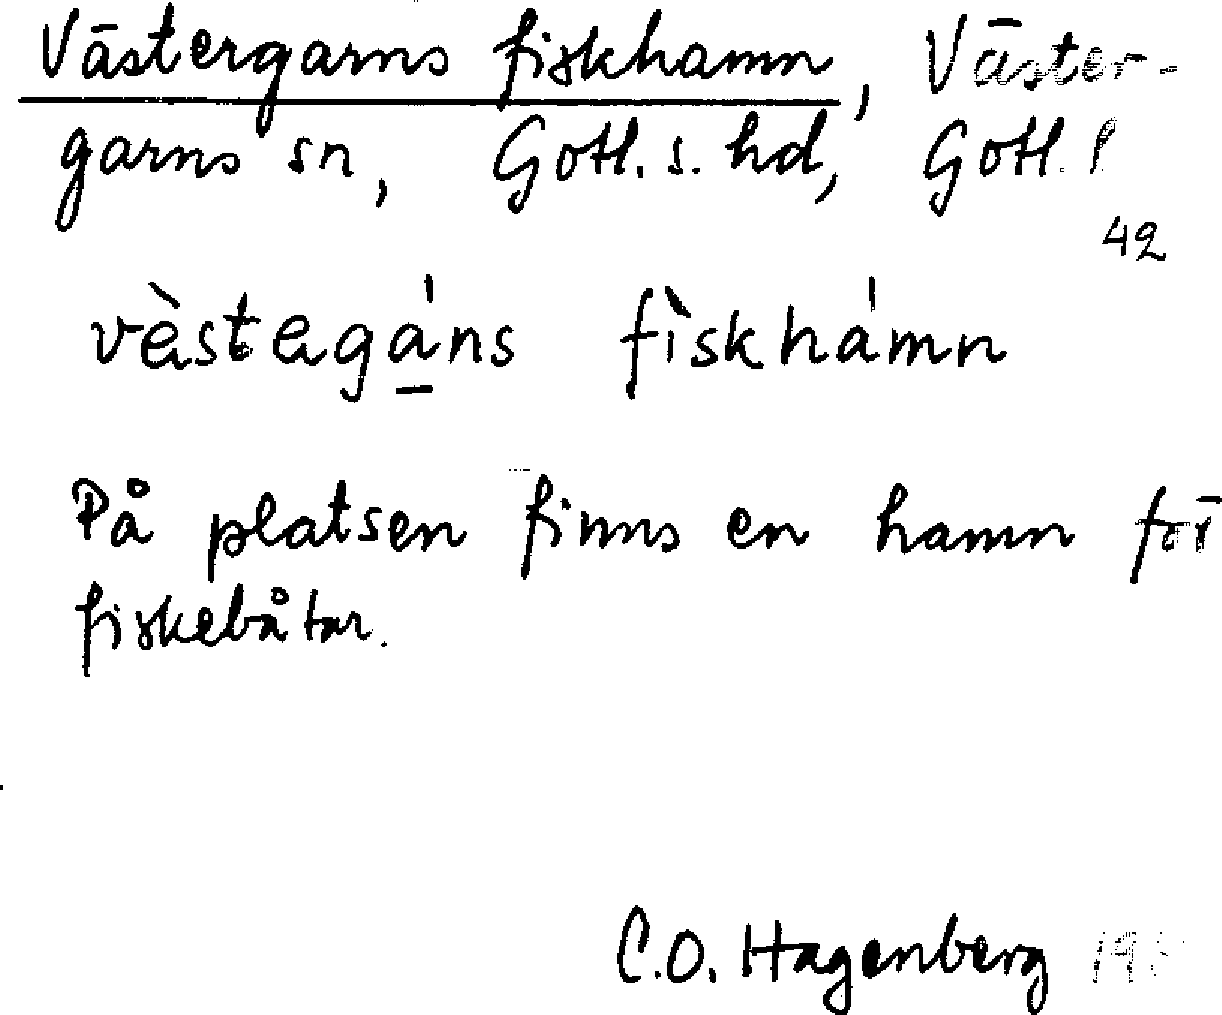 Västergarns fiskhamn, Väster-
garns sn, Gotl. s. hd, Gotl. l
42
vèstegá̱ns fìskhámn
På platsen finns en hamn för
fiskebåtar.
C.O. Hagenberg